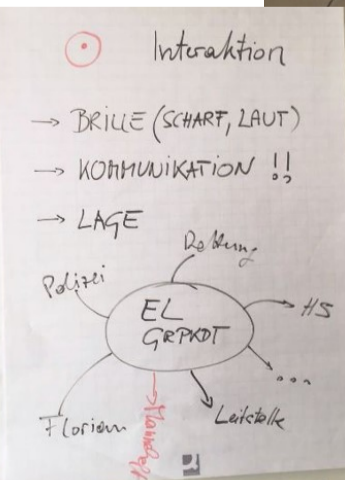 Interaktion
→ BRILLE (SCHARF, LAUT)
→ KOMMUNIKATION !!
→ LAGE
Rettung
Polizei
EL
GRPKDT
HS
...
Florian
Leitstelle